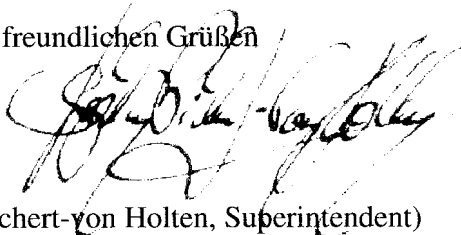 freundlichen Grüßen
chert-von Holten, Superintendent)